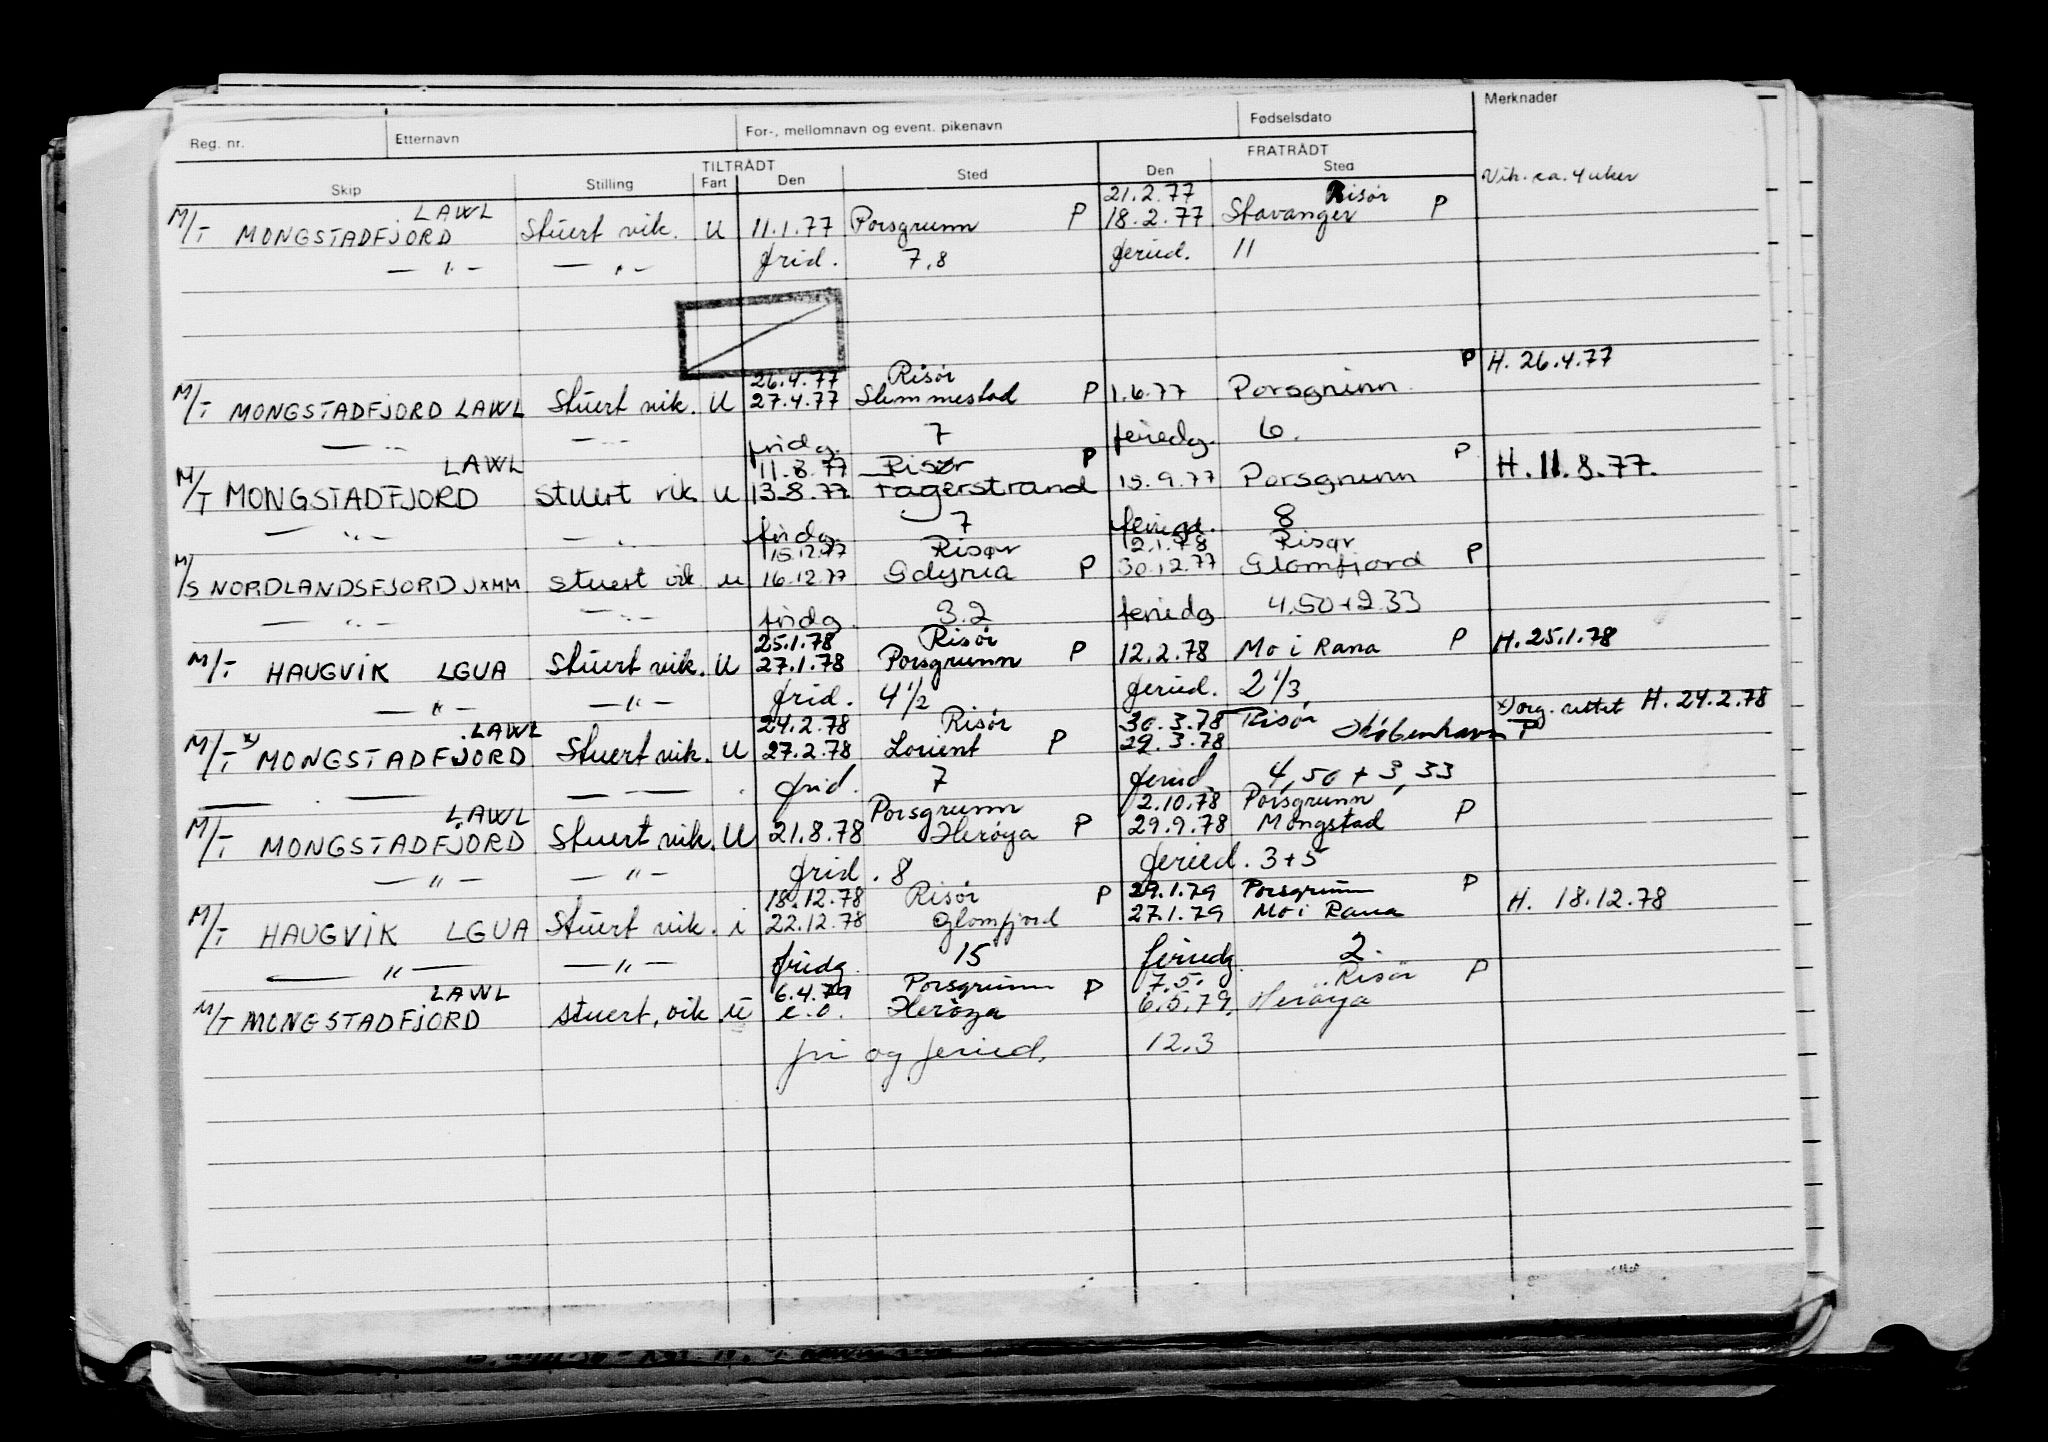 Reg. nr. Etternavn For-, mellomnavn og event. pikenavn Fødselsdato Merknader
TILTRÅDT FRATRÅDT
Skip Stilling Fart Den Sted Den Sted
Vik. ca. 4 uker
LAWL 21.2.77 Risør
M/T MONGSTADFJORD Stuert vik. U 11.1.77 Porsgrunn P 18.2.77 Stavanger P
— " — — " — frid. 7,8 feried. 11
26.4.77 Risør P H. 26.4.77
M/T MONGSTADFJORD LAWL Stuert vik. U 27.4.77 Slemmestad P 1.6.77 Porsgrunn
— " — — " — fridg. 7 feriedg. 6.
LAWL 11.8.77 Risør P P
M/T MONGSTADFJORD stuert vik U 13.8.77 Fagerstrand 15.9.77 Porsgrunn H. 11.8.77.
— " — — " — fridg. 7 feriedg. 8
15.12.77 Risør 2.1.78 Risør
M/S NORDLANDSFJORD JXMM stuert vik u 16.12.77 Gdynia P 30.12.77 Glomfjord P
— " — — " — fridg. 3.2 feriedg 4,50+2.33
25.1.78 Risør
M/T HAUGVIK LGUA Stuert vik. U 27.1.78 Porsgrunn P 12.2.78 Mo i Rana P H. 25.1.78
— " — — " — frid. 4 1/2 feried. 2 1/3
LAWL 24.2.78 Risør 30.3.78 Risør x) org. rettet H. 24.2.78
M/T x) MONGSTADFJORD Stuert vik. U 27.2.78 Lorient P 29.3.78 København P
— — — — frid. 7 feried. 4,50 + 3,33
LAWL Porsgrunn 2.10.78 Porsgrunn
M/T MONGSTADFJORD Stuert vik. U 21.8.78 Herøya P 29.9.78 Mongstad P
— " — — " — frid. 8 feried. 3+5
18.12.78 Risør P 29.1.79 Porsgrunn P
M/T HAUGVIK LGUA Stuert vik. i 22.12.78 Glomfjord 27.1.79 Mo i Rana H. 18.12.78
— " — — " — fridg. 15 feriedg. 2.
LAWL 6.4.79 Porsgrunn P 7.5. Risør P
M/T MONGSTADFJORD stuert, vik u e.o. Herøya 6.5.79, Herøya
fri og feried. 12.3